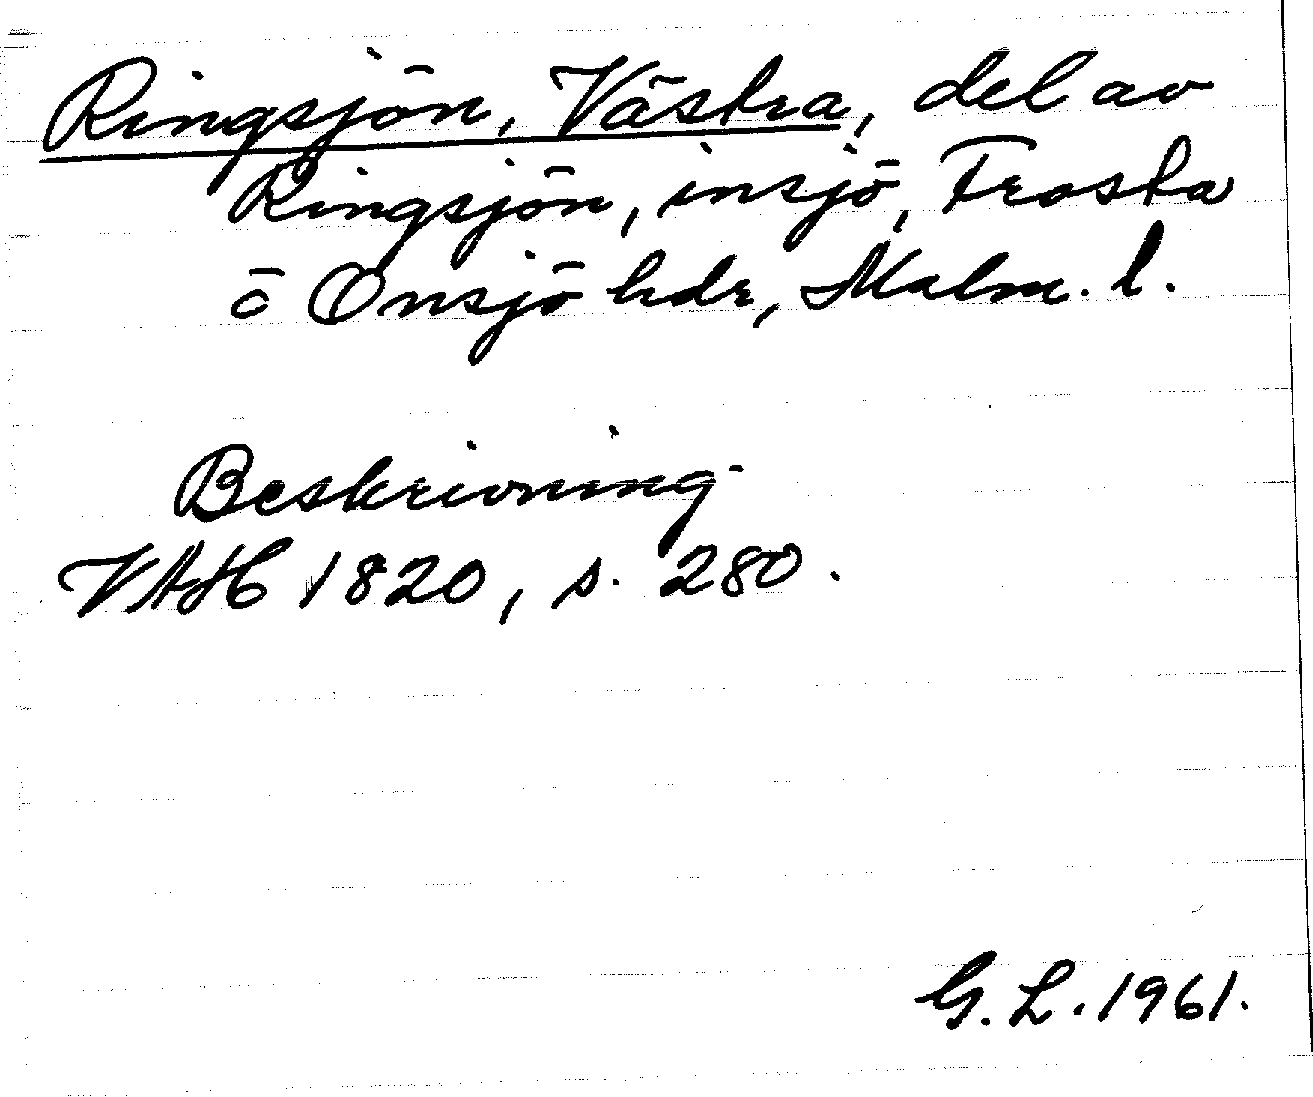 Ringsjön, Västra, del av
Ringsjön, insjö, Frosta
o Onsjö hdr, Malm. l.
Beskrivning
VAH 1820, s. 280.
G. L. 1961.